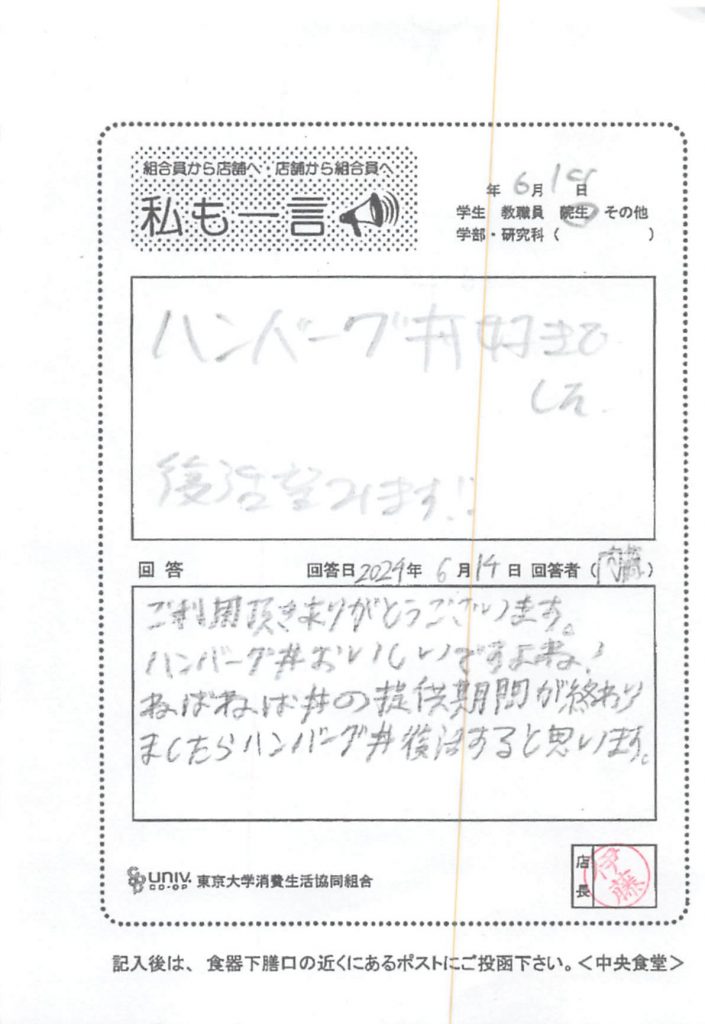 組合員から店舗へ・店舗から組合員へ
私も一言
年 6月 日
学生 教職員 院生 その他
学部・研究科( )
ハンバーグ丼好きで
した.
復活望みます!!
回答 回答日2024年 6月14日 回答者(内藤)
ご利用頂きありがとうございます。
ハンバーグ丼おいしいですよね!
ねばねば丼の提供期間が終わり
ましたらハンバーグ丼復活すると思います。
UNIV. CO-OP 東京大学消費生活協同組合
店長 伊藤
記入後は、食器下膳口の近くにあるポストにご投函下さい。<中央食堂>